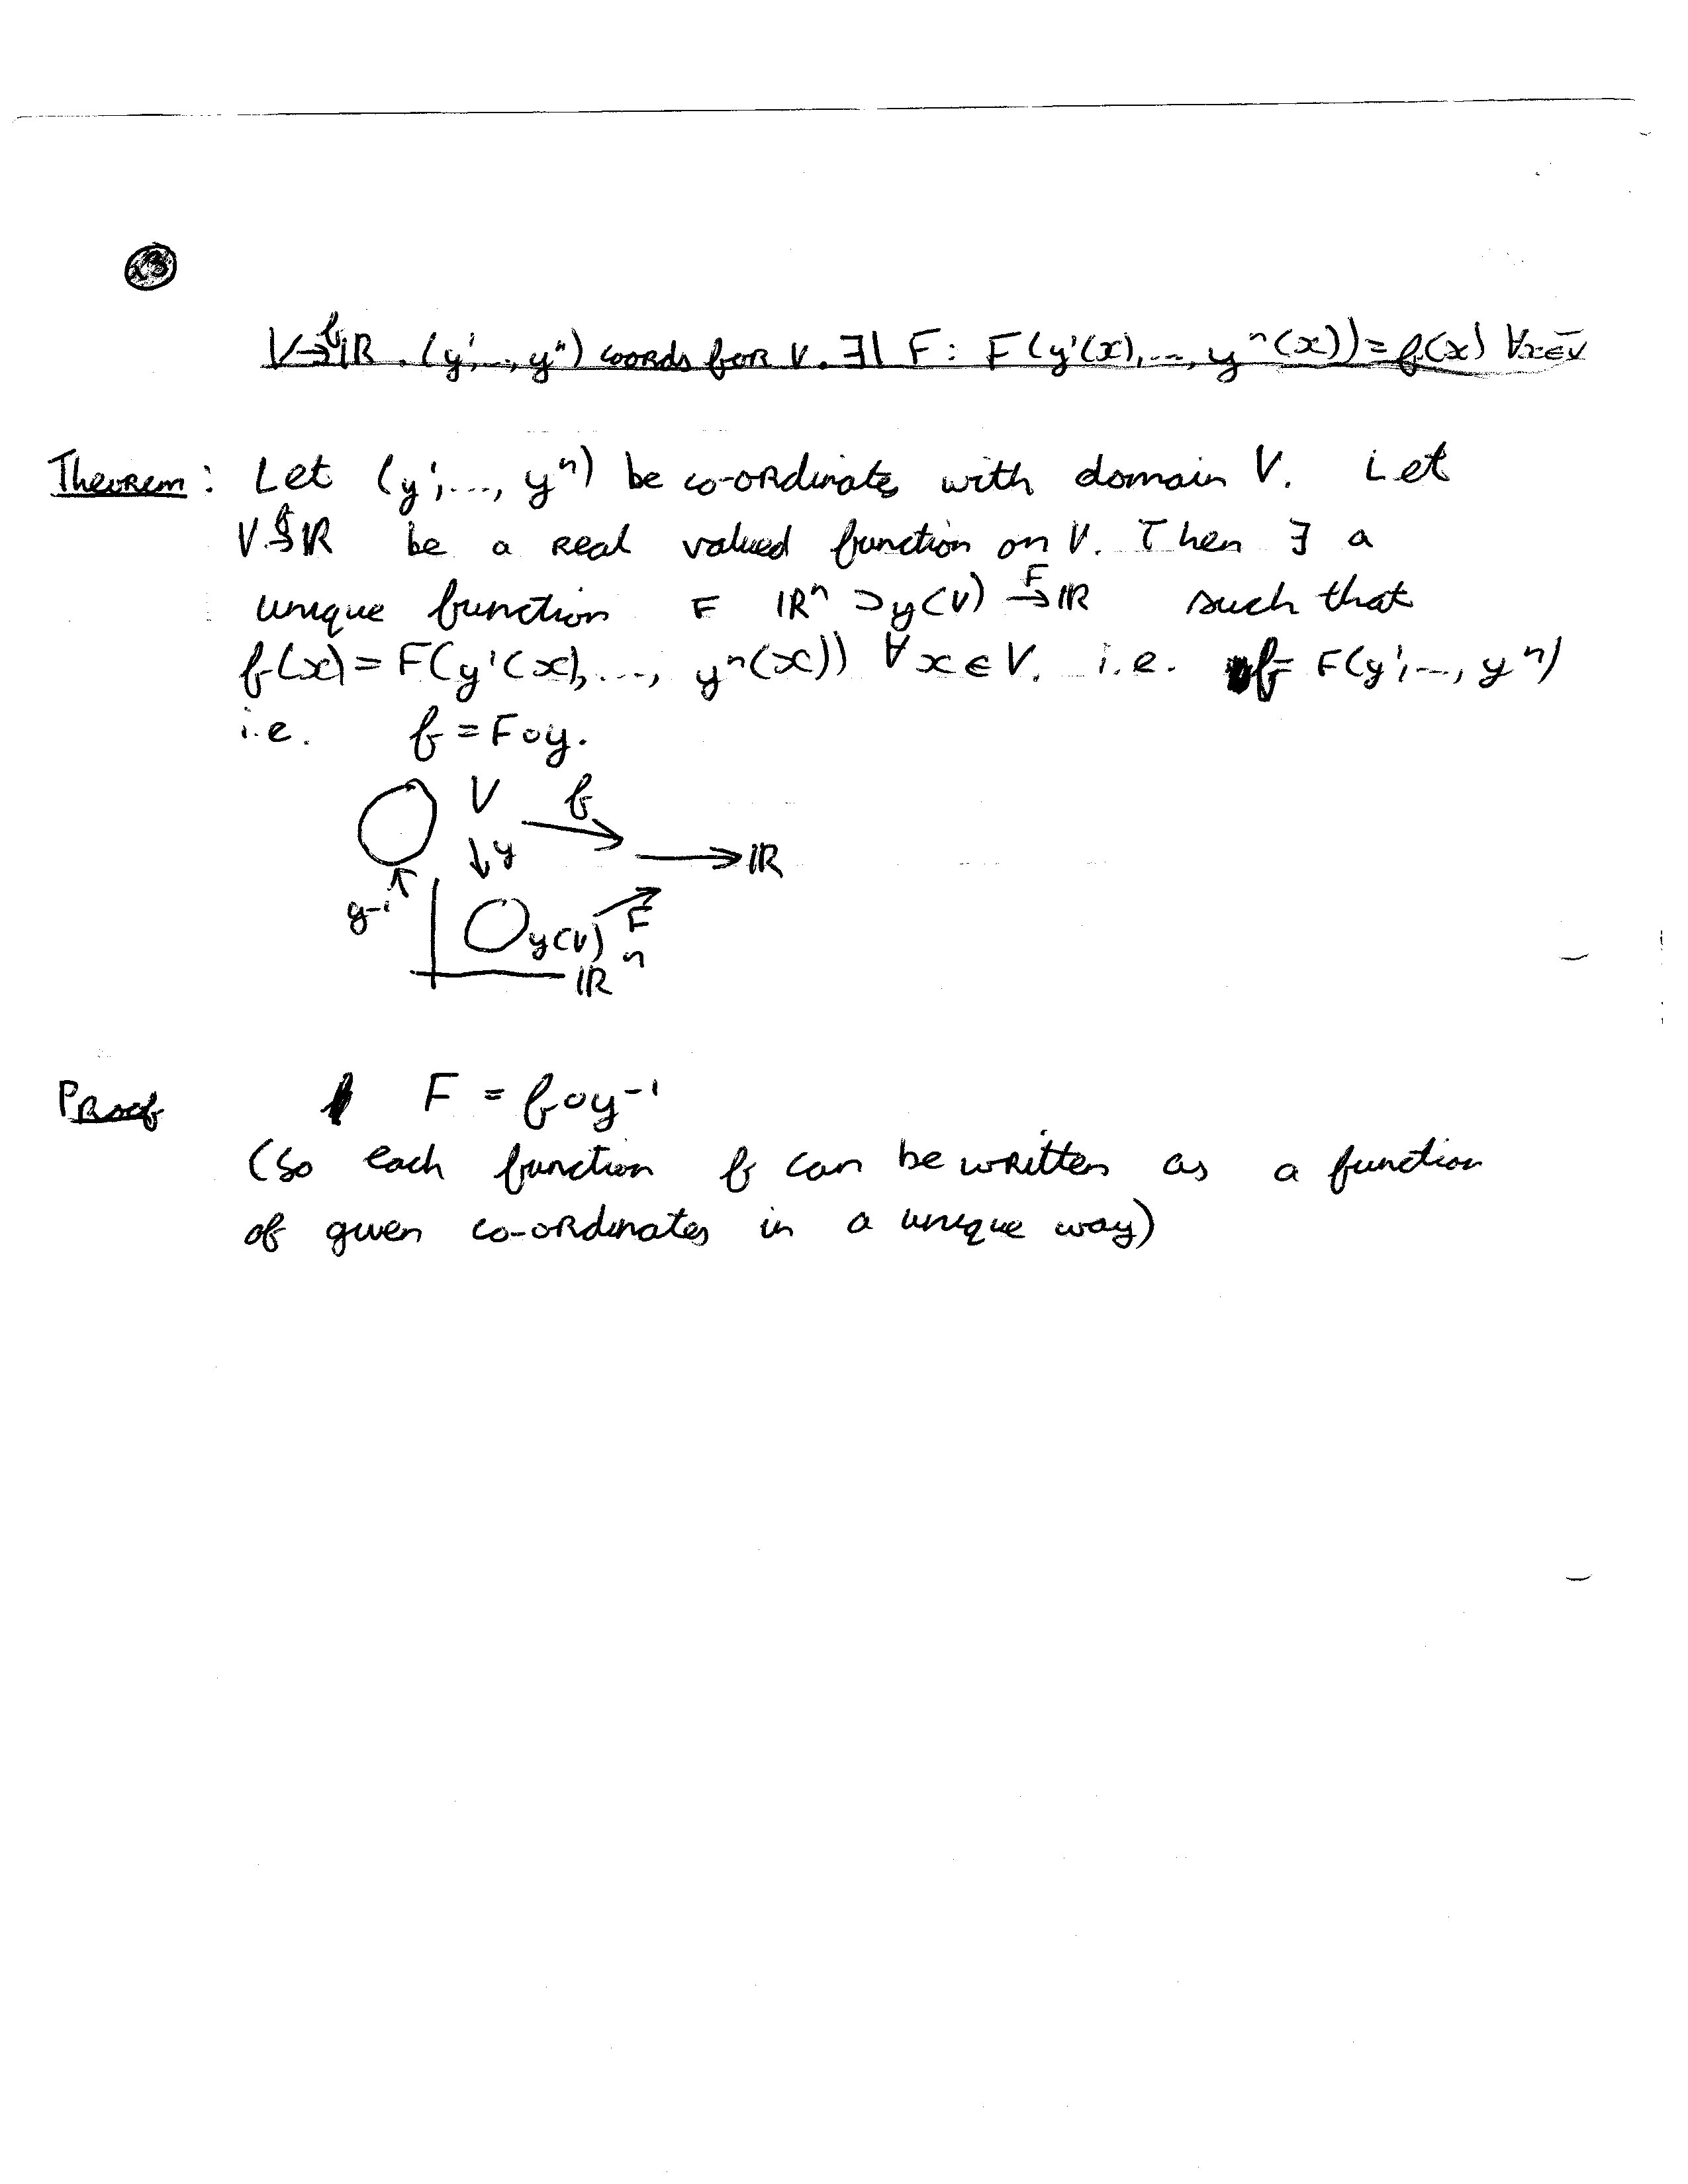 23
V →f ℝ. (y¹,..., yⁿ) coords for V. ∃| F: F(y¹(x),..., yⁿ(x)) = f(x) ∀x∈V
Theorem: Let (y¹,..., yⁿ) be co-ordinates with domain V. Let
V →f ℝ be a real valued function on V. Then ∃ a
unique function F ℝⁿ ⊃ y(V) →F ℝ such that
f(x) = F(y¹(x),..., yⁿ(x)) ∀ x ∈ V. i.e. f = F(y¹,..., yⁿ)
i.e. f = F∘y.
V f
y → ℝ
y⁻¹ y(V) F
ℝⁿ
Proof F = f∘y⁻¹
(So each function f can be written as a function
of given co-ordinates in a unique way)